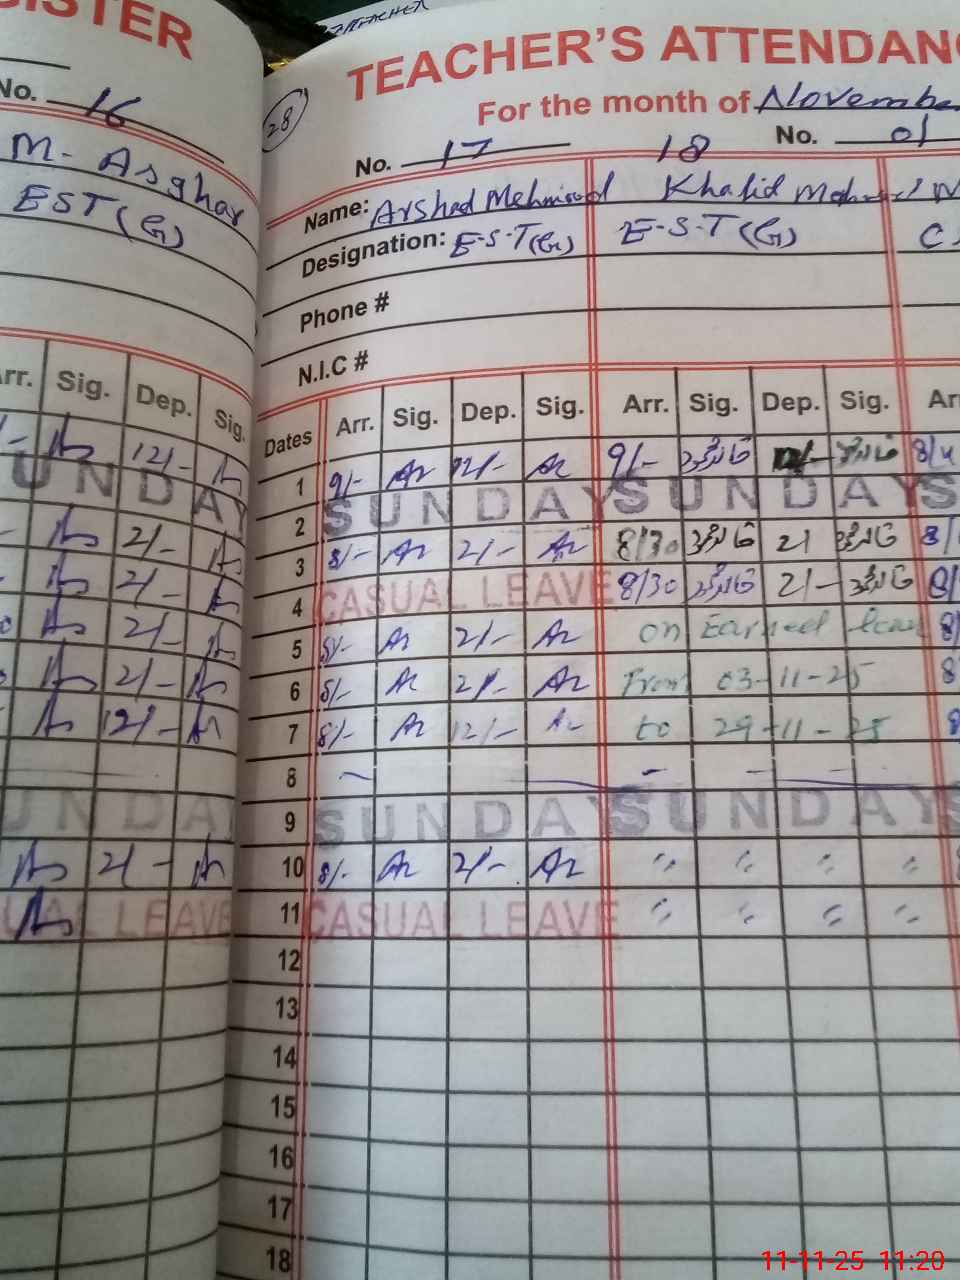 ISTER
No. 16
M. Asghar
EST (G)
Arr. Sig. Dep. Sig.
12/-
SUNDAY
2/-
2/-
2/-
2/-
12/-
SUNDAY
2/-
CASUAL LEAVE
28
TEACHER'S ATTENDANC
For the month of November
No. 17 18 No. 01
Name: Arshad Mehmood Khalid Mehmood
Designation: E.S.T (G) E.S.T (G)
Phone #
N.I.C #
Dates Arr. Sig. Dep. Sig. Arr. Sig. Dep. Sig. Arr
1 9/- Ar 12/- Ar 9/-
2 SUNDAY SUNDAY S
3 8/- Ar 2/- Ar 8/30 2/
4 CASUAL LEAVE 8/30 2/-
5 8/- Ar 2/- Ar on Earned leave
6 8/- Ar 2/- Ar From 03-11-25
7 8/- Ar 12/- Ar to 29-11-25
8
9 SUNDAY SUNDAY S
10 8/- Ar 2/- Ar " " " "
11 CASUAL LEAVE " " " "
12
13
14
15
16
17
18
11-11-25 11:20